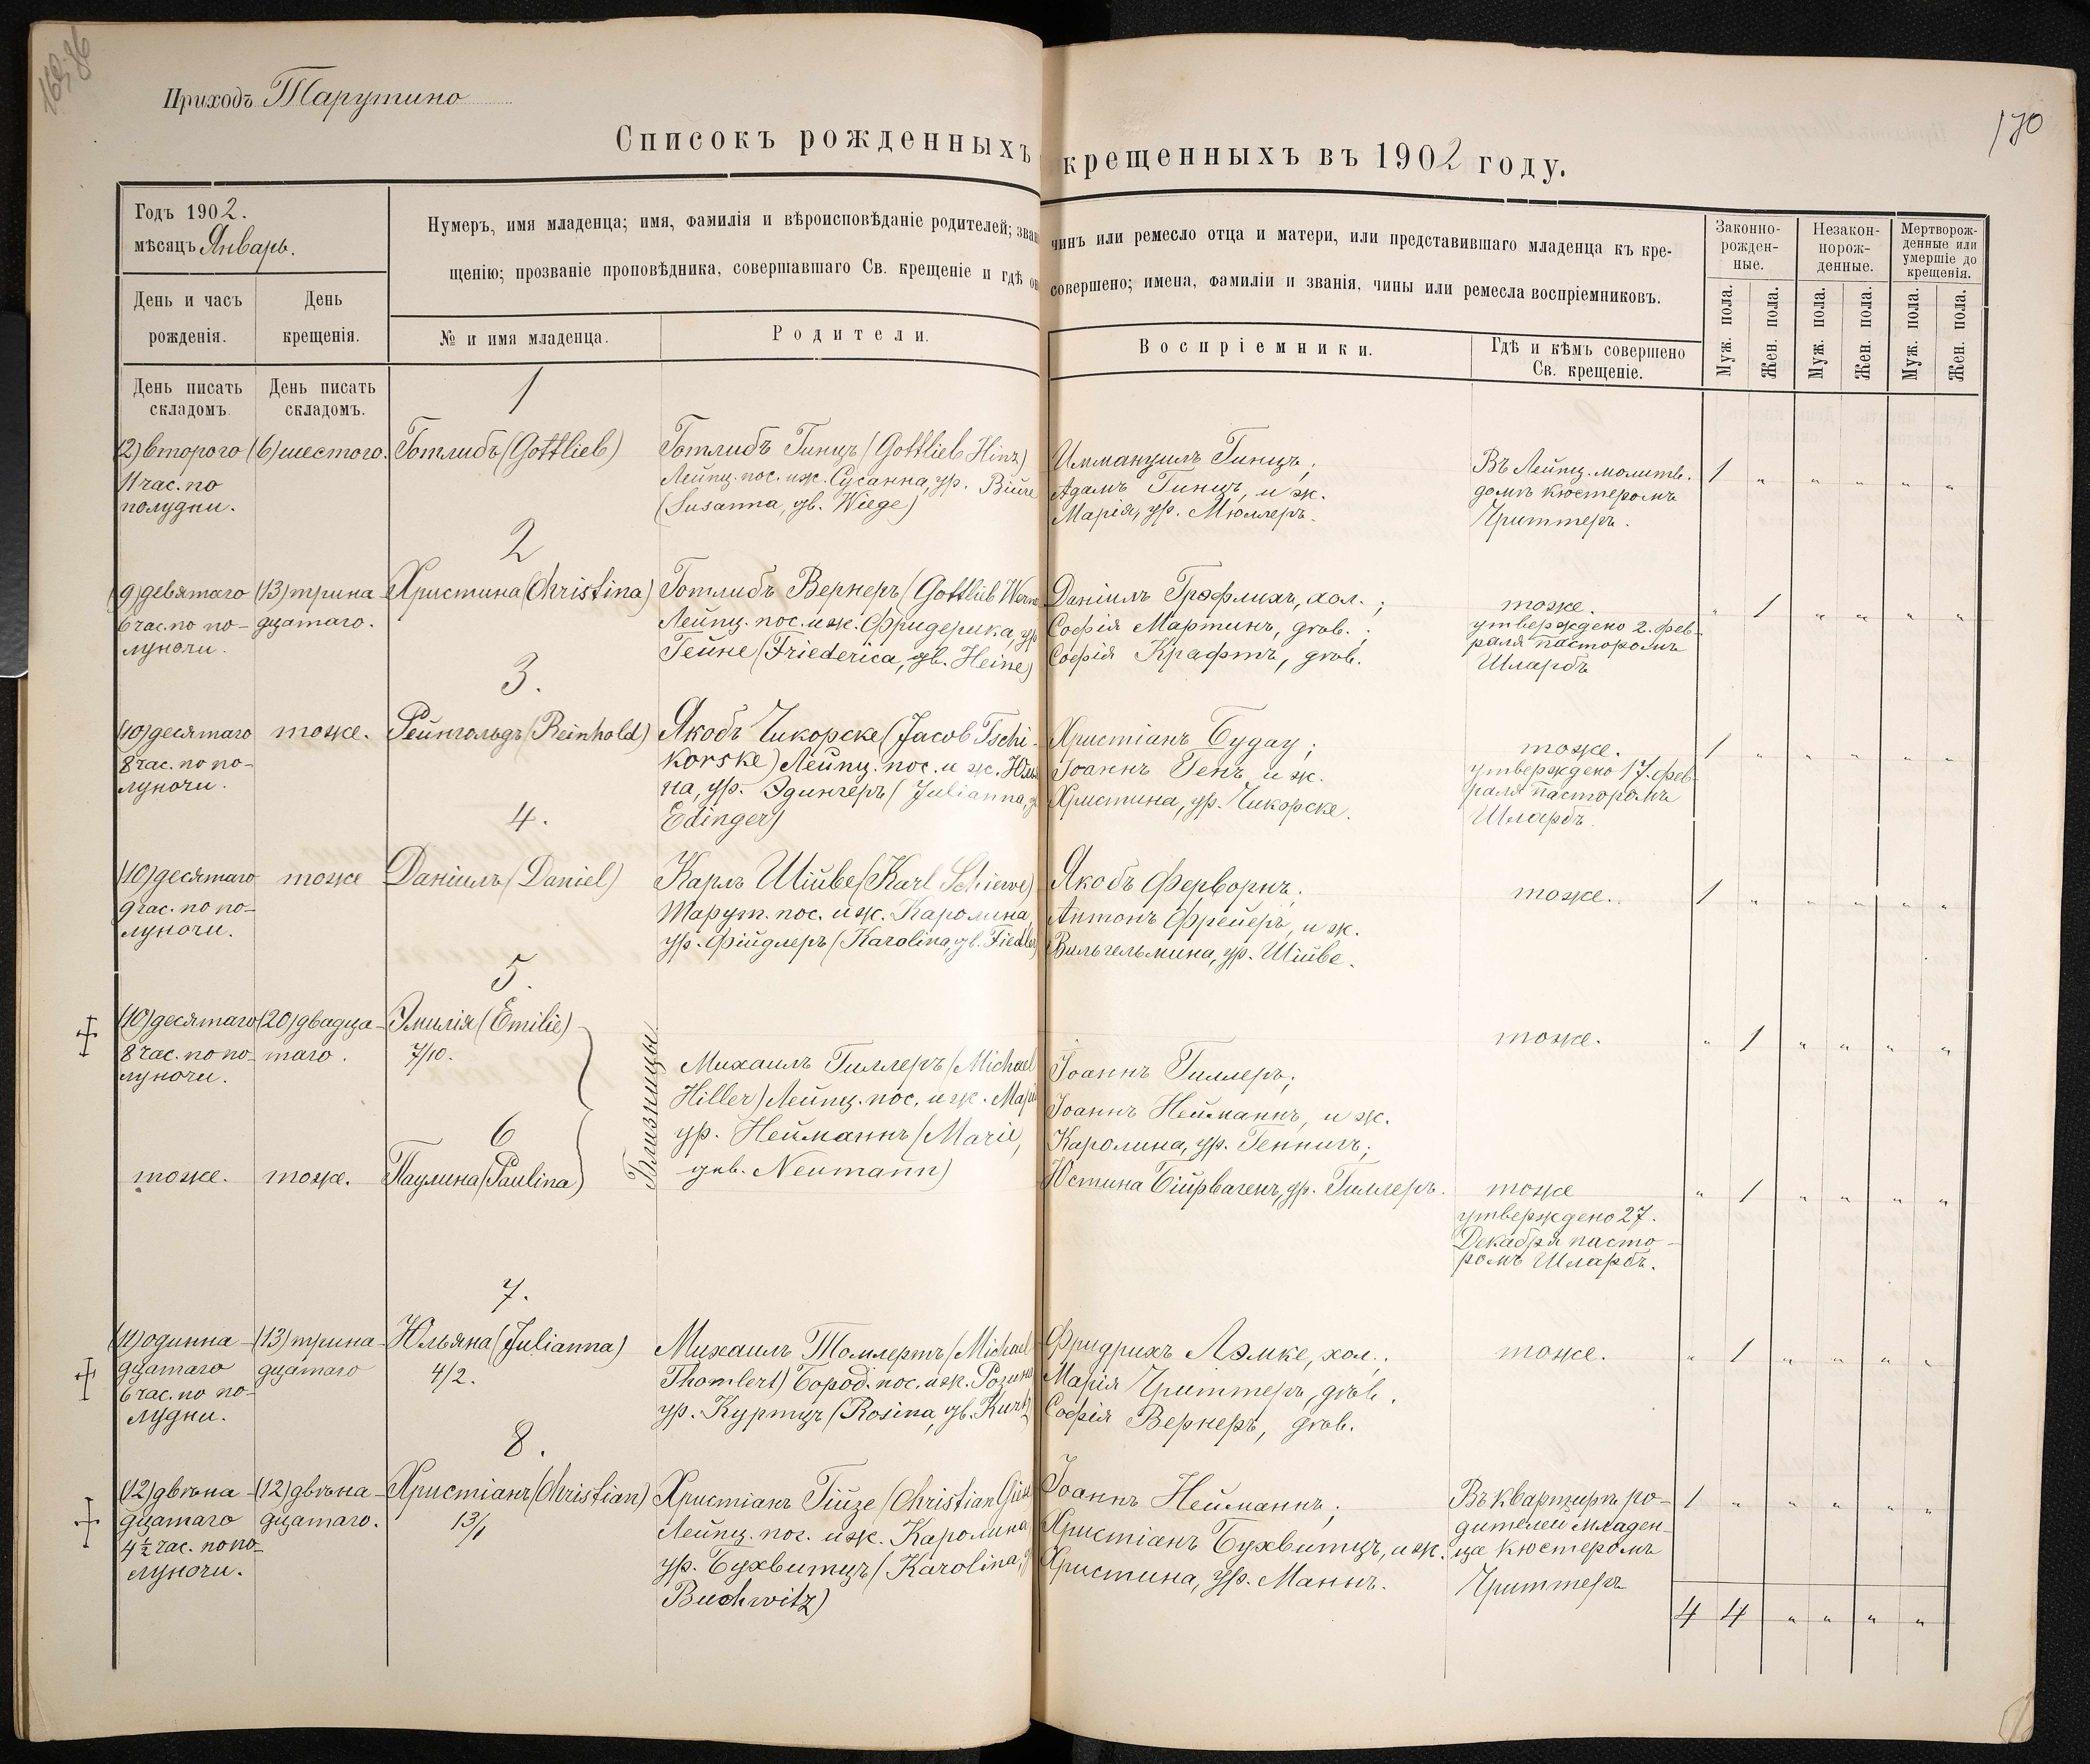 Приходъ Тарутино
170
Списокъ рожденныхъ крещенныхъ въ 1902 году.
Годъ 1902.
мѣсяцъ Январь.
Нумеръ, имя младенца; имя, фамилія и вѣроисповѣданіе родителей; чинъ или ремесло отца и матери, или представившаго младенца къ кре-
щенію; прозваніе проповѣдника, совершавшаго Св. крещеніе и гдѣ совершено; имена, фамиліи и званія, чины или ремесла воспріемниковъ.
Законно-
рожден-
ные.
Незакон-
норож-
денные.
Мертворож-
денные или
умершіе до
крещенія.
День и часъ
рожденія.
День
крещенія.
№ и имя младенца.
Родители.
Воспріемники.
Гдѣ и кѣмъ совершено
Св. крещеніе.
Муж. пола.
Жен. пола.
Муж. пола.
Жен. пола.
Муж. пола.
Жен. пола.
День писать
складомъ
День писать
складомъ.
1
(2) второго
11 час. по
полудни.
(6) шестого.
Готлибъ (Gottlieb)
Готлибъ Гинцъ (Gottlieb Hinz)
Лейпц. пос. и ж. Сусанна, ур.
(Susanna, gb. Wiege)
Иммануилъ Гинцъ;
Адамъ Гинцъ, и ж.
Марія, ур. Мюллеръ.
Въ Лейпц. молитв.
домѣ кюстеромъ
Чриттеръ.
1 " " " " "
2
(9) девятаго
6 час. по по-
луночи.
(13) трина-
дцатаго.
Христина (Christina)
Готлибъ Вернеръ (Gottlieb
Лейпц. пос. и ж. Фридерика, ур
Гейне (Friederica, gb. Heine)
Даніилъ Грэфлихъ, хол.;
Софія Мартинъ, дѣв.;
Софія Крафтъ, дѣв.
тоже.
утверждено 2. фев-
раля пасторомъ
Шларбъ
" 1 " " " "
3.
(10) десятаго
8 час. по по-
луночи.
тоже.
Рейнгольдъ (Reinhold)
Якобъ Чикорске (Jacob Tschi-
korske) Лейпц. пос. и ж.
на, ур. Эдингеръ (Julianna,
Edinger)
Христіанъ Будау;
Іоаннъ Генъ и ж.
Христина, ур. Чикорске.
тоже.
утверждено 17. фев-
раля пасторомъ
Шларбъ.
1 " " " " "
4.
(10) десятаго
9 час. по по-
луночи.
тоже
Даніилъ (Daniel)
Карлъ Шійве (Karl Schiewe)
Тарут. пос. и ж. Каролина,
ур. Фійдлеръ (Karolina, gb. Fiedler)
Якобъ Ферворнъ;
Антонъ Фрейеръ, и ж.
Вильгельмина, ур. Шійве.
тоже.
1 " " " " "
5.
(10) десятаго
8 час. по по-
луночи.
(20) двадца-
таго.
Эмилія (Emilie)
7/10.
Близнецы
Михаилъ Гиллеръ (Michael
Hiller) Лейпц. пос. и ж.
ур. Нейманнъ (Marie,
geb. Neumann)
Іоаннъ Гиллеръ;
Іоаннъ Нейманнъ, и ж.
Каролина, ур. Геннигъ;
Юстина Бійрвагенъ, ур. Гиллеръ.
тоже.
" 1 " " " "
6
тоже.
тоже.
Паулина (Paulina)
тоже
утверждено 27.
Декабря пасто-
ромъ Шларбъ.
" 1 " " " "
7.
(11) одинна-
дцатаго
6 час. по по-
лудни.
(13) трина-
дцатаго
Юльяна (Julianna)
4/2.
Михаилъ Томлертъ (Michael
Thomlert) Бород. пос. и ж.
ур. Куртцъ (Rosina, gb. Kurtz
Фридрихъ Лэмке, хол.;
Марія Чриттеръ, дѣв.
Софія Вернеръ, дѣв.
тоже.
" 1 " " " "
8.
(12) двѣна-
дцатаго
4½ час. по по-
луночи.
(12) двѣна-
дцатаго.
Христіанъ (Christian)
13/1
Христіанъ Гійзе (Christian
Лейпц. пос. и ж. Каролина
ур. Бухвитцъ (Karolina,
Buchwitz)
Іоаннъ Нейманнъ;
Христіанъ Бухвитцъ, и ж.
Христина, ур. Маннъ.
Въ квартирѣ ро-
дителей младен-
ца кюстеромъ
Чриттеръ
1 " " " " "
4 4 " " " "